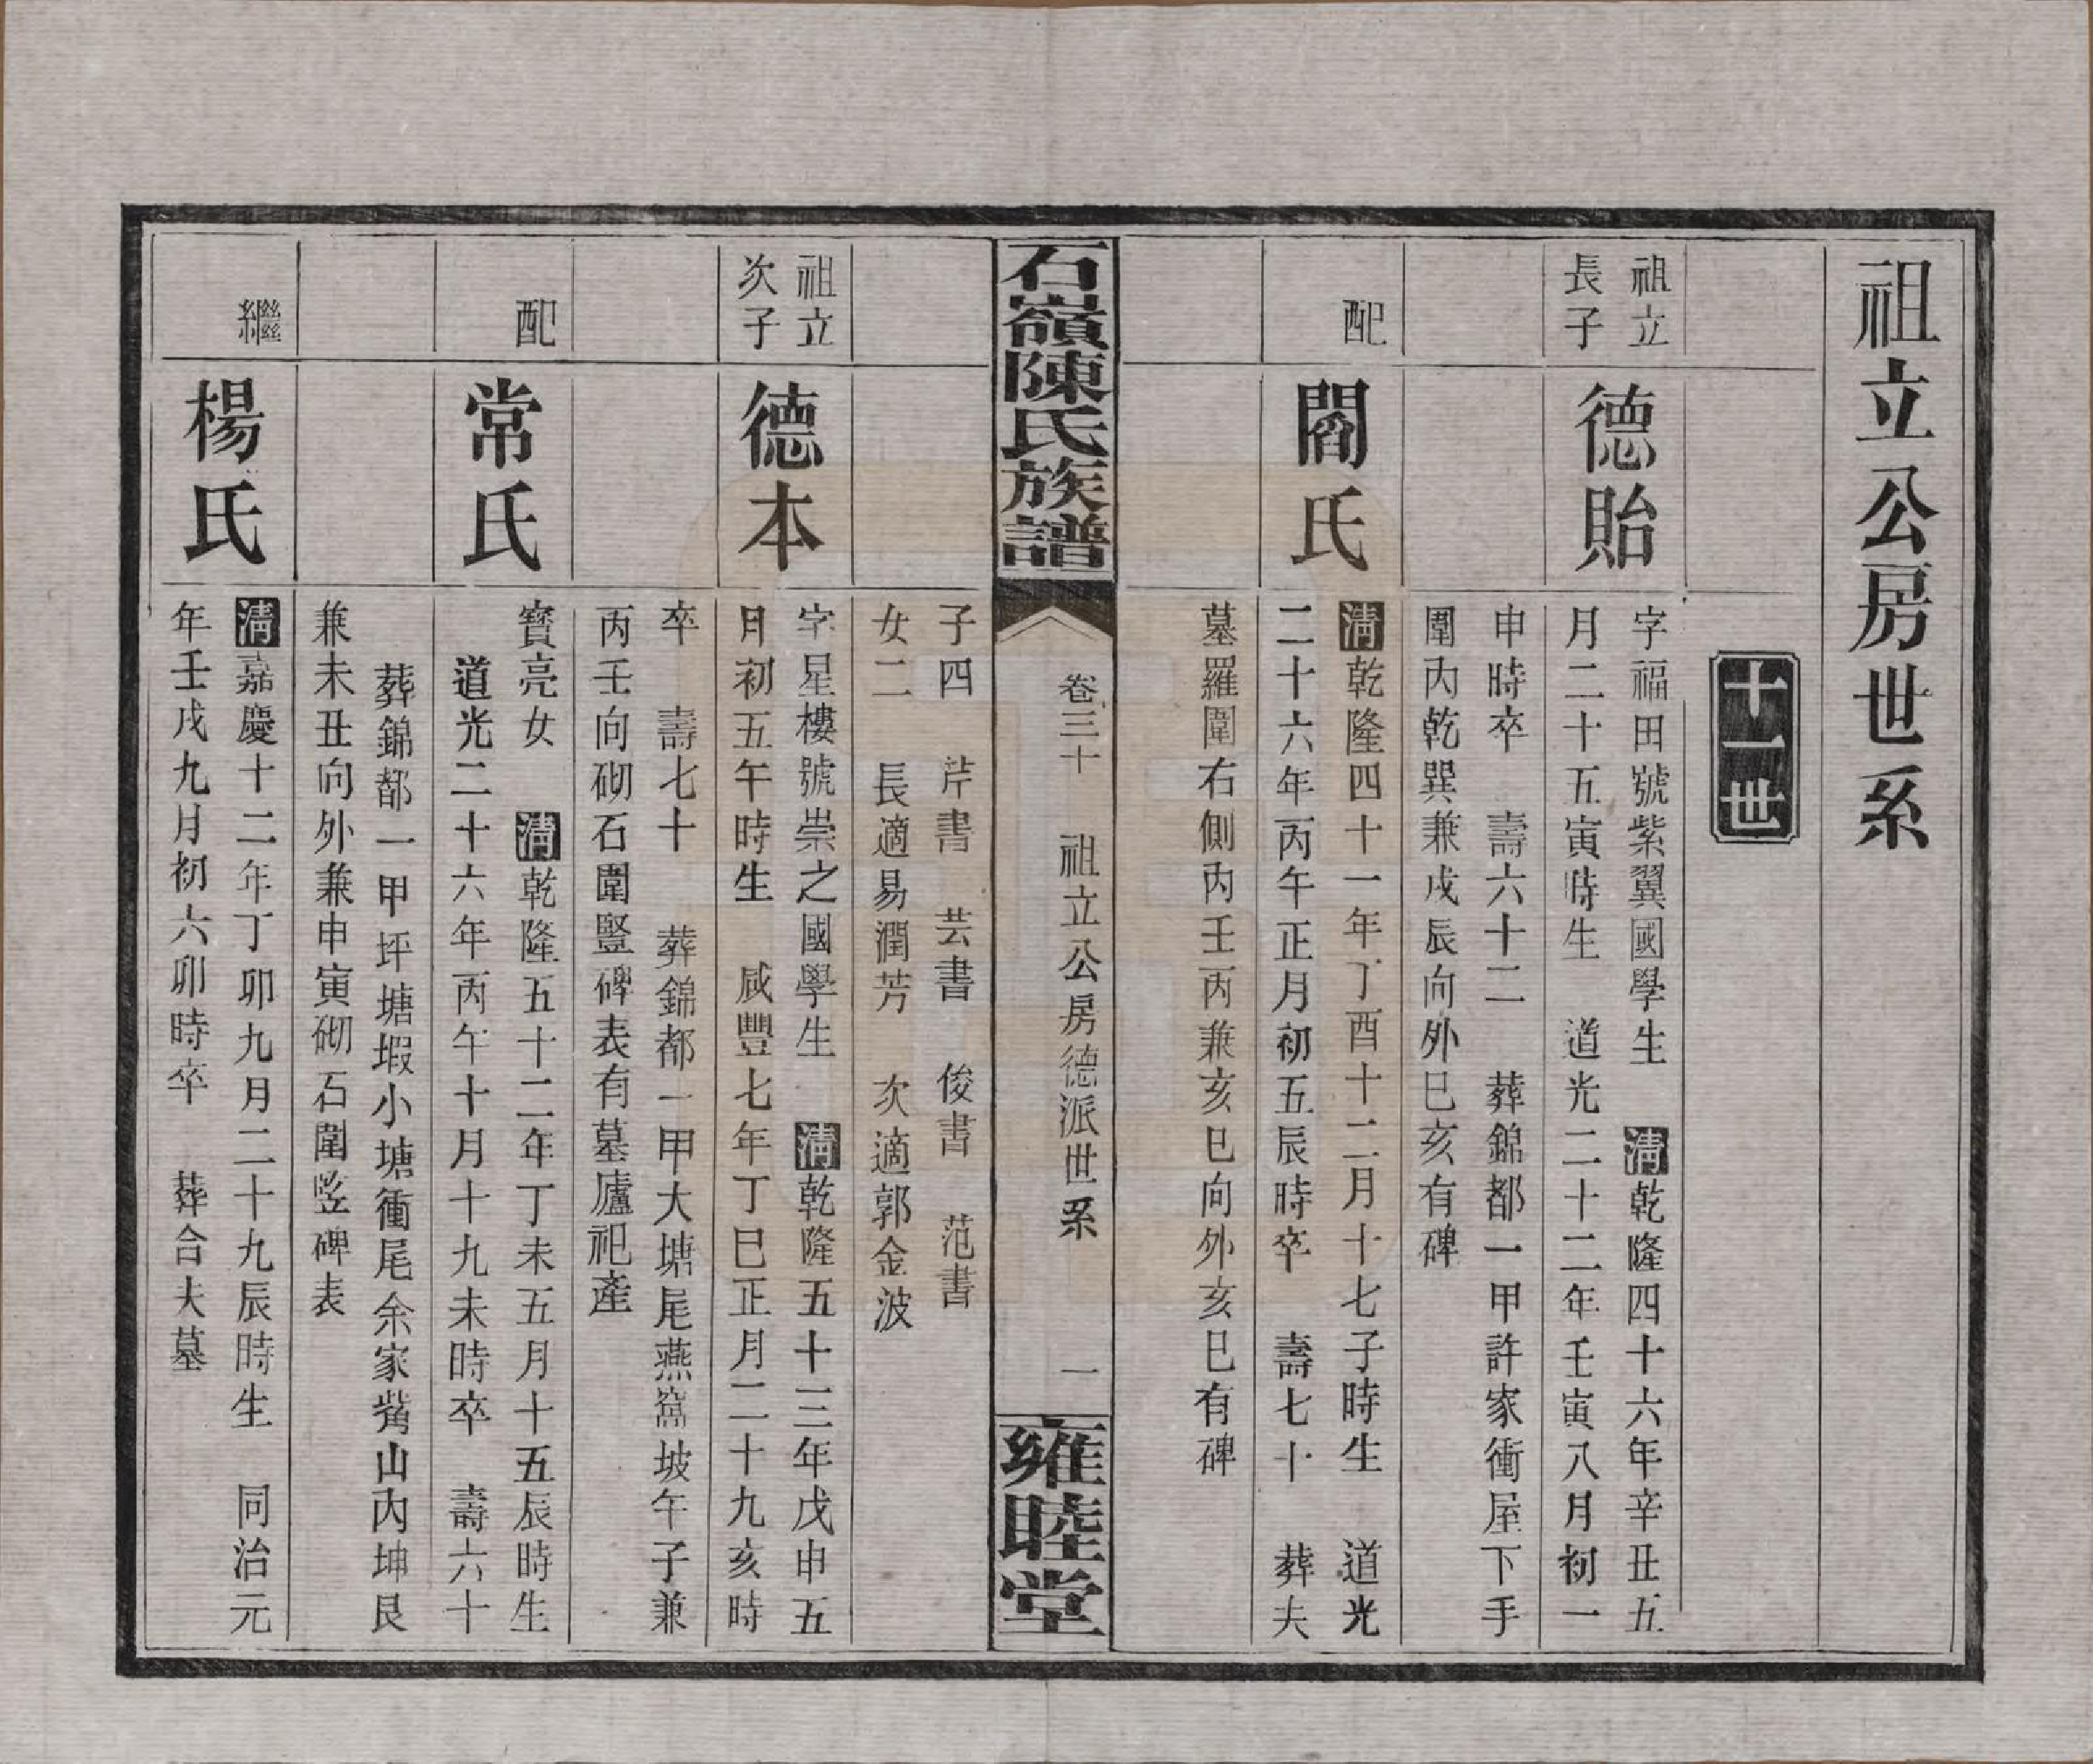 祖立公房世系
十一世
祖立
長子
德貽
字福田號紫翼國學生　清乾隆四十六年辛丑五
月二十五寅時生　道光二十二年壬寅八月初一
申時卒　壽六十二　葬錦都一甲許家衝屋下手
圍內乾巽兼戌辰向外巳亥有碑
配
閻氏
清乾隆四十一年丁酉十二月十七子時生　道光
二十六年丙午正月初五辰時卒　壽七十　葬夫
墓羅圍右側內壬丙兼亥巳向外亥巳有碑
石嶺陳氏族譜
卷三十　祖立公房德派世系　一
雍睦堂
子四　芹書　芸書　俊書　范書
女二　長適易潤芳　次適郭金波
祖立
次子
德本
字星樓號崇之國學生　清乾隆五十三年戊申五
月初五午時生　咸豐七年丁巳正月二十九亥時
卒　壽七十　葬錦都一甲大塘尾燕窩坡午子兼
丙壬向砌石圍豎碑表有墓廬祀產
配
常氏
寶亮女　清乾隆五十二年丁未五月十五辰時生
道光二十六年丙午十月十九未時卒　壽六十
葬錦都一甲坪塘塅小塘衝尾余家嘴山內坤艮
兼未丑向外兼申寅砌石圍竖碑表
繼
楊氏
清嘉慶十二年丁卯九月二十九辰時生　同治元
年壬戌九月初六卯時卒　葬合夫墓